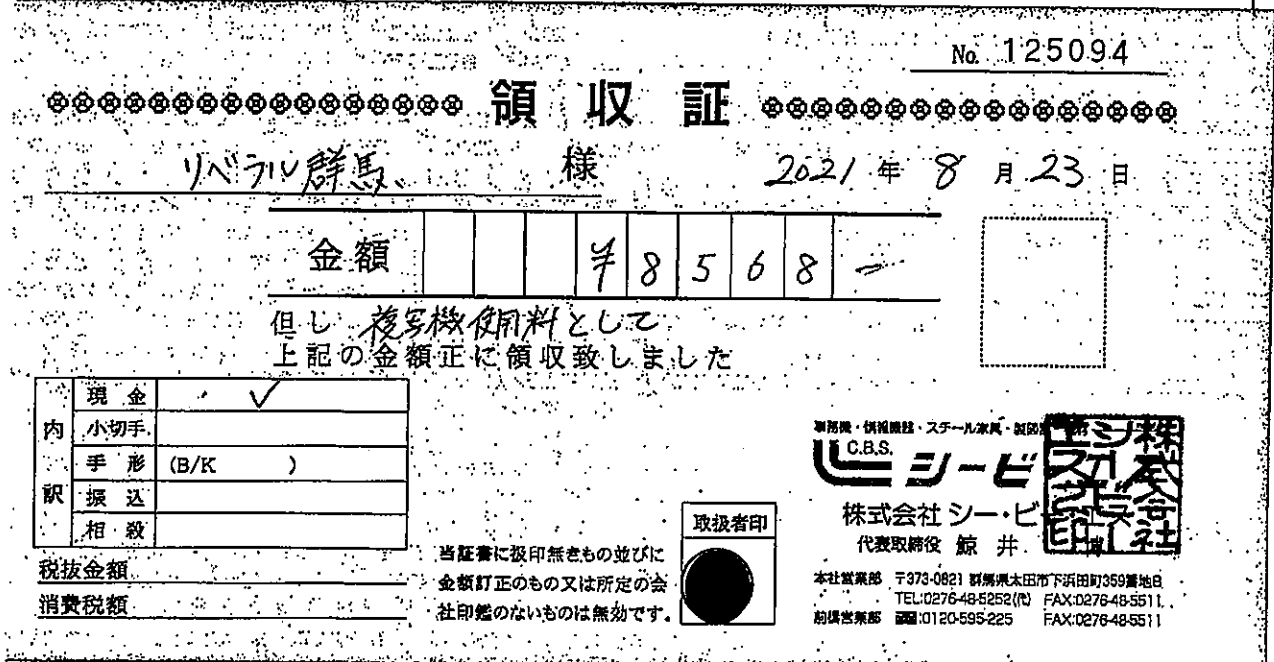 No. 125094
領収証
リベラル群馬 様
2021年8月23日
金額 ¥8568-
但し 複写機使用料として
上記の金額正に領収致しました
内訳
現金 ✓
小切手
手形 (B/K )
振込
相殺
税抜金額
消費税額
当証書に扱印無きもの並びに
金額訂正のもの又は所定の会
社印鑑のないものは無効です。
取扱者印
事務機・情報機器・スチール家具・
C.B.S.
シービ
株式会社 シー・ビー・エス
代表取締役 鯨井
株式会社シー・ビー・エス印
本社営業部 〒373-0821 群馬県太田市下浜田町359番地8
TEL:0276-48-5252(代) FAX:0276-48-5511
前橋営業部 0120-595-225 FAX:0276-48-5511